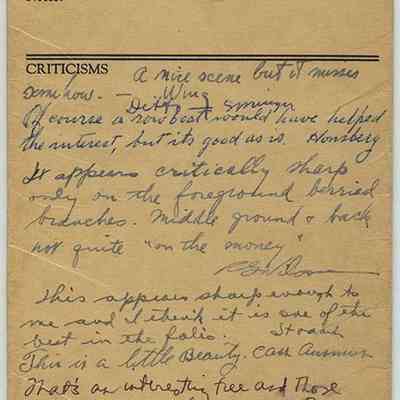 CRITICISMS
A nice scene but it misses
somehow. — Wing
Ditto — Springer
Of course a rowboat would have helped
the interest, but its good as is. Honsberg
It appears critically sharp
only on the foreground berried
branches. Middle ground & back
not quite "on the money"
This appears sharp enough to
me and I think it is one of the
best in the folio. Stroad
This is a little Beauty. Carr
That's an interesting tree and those